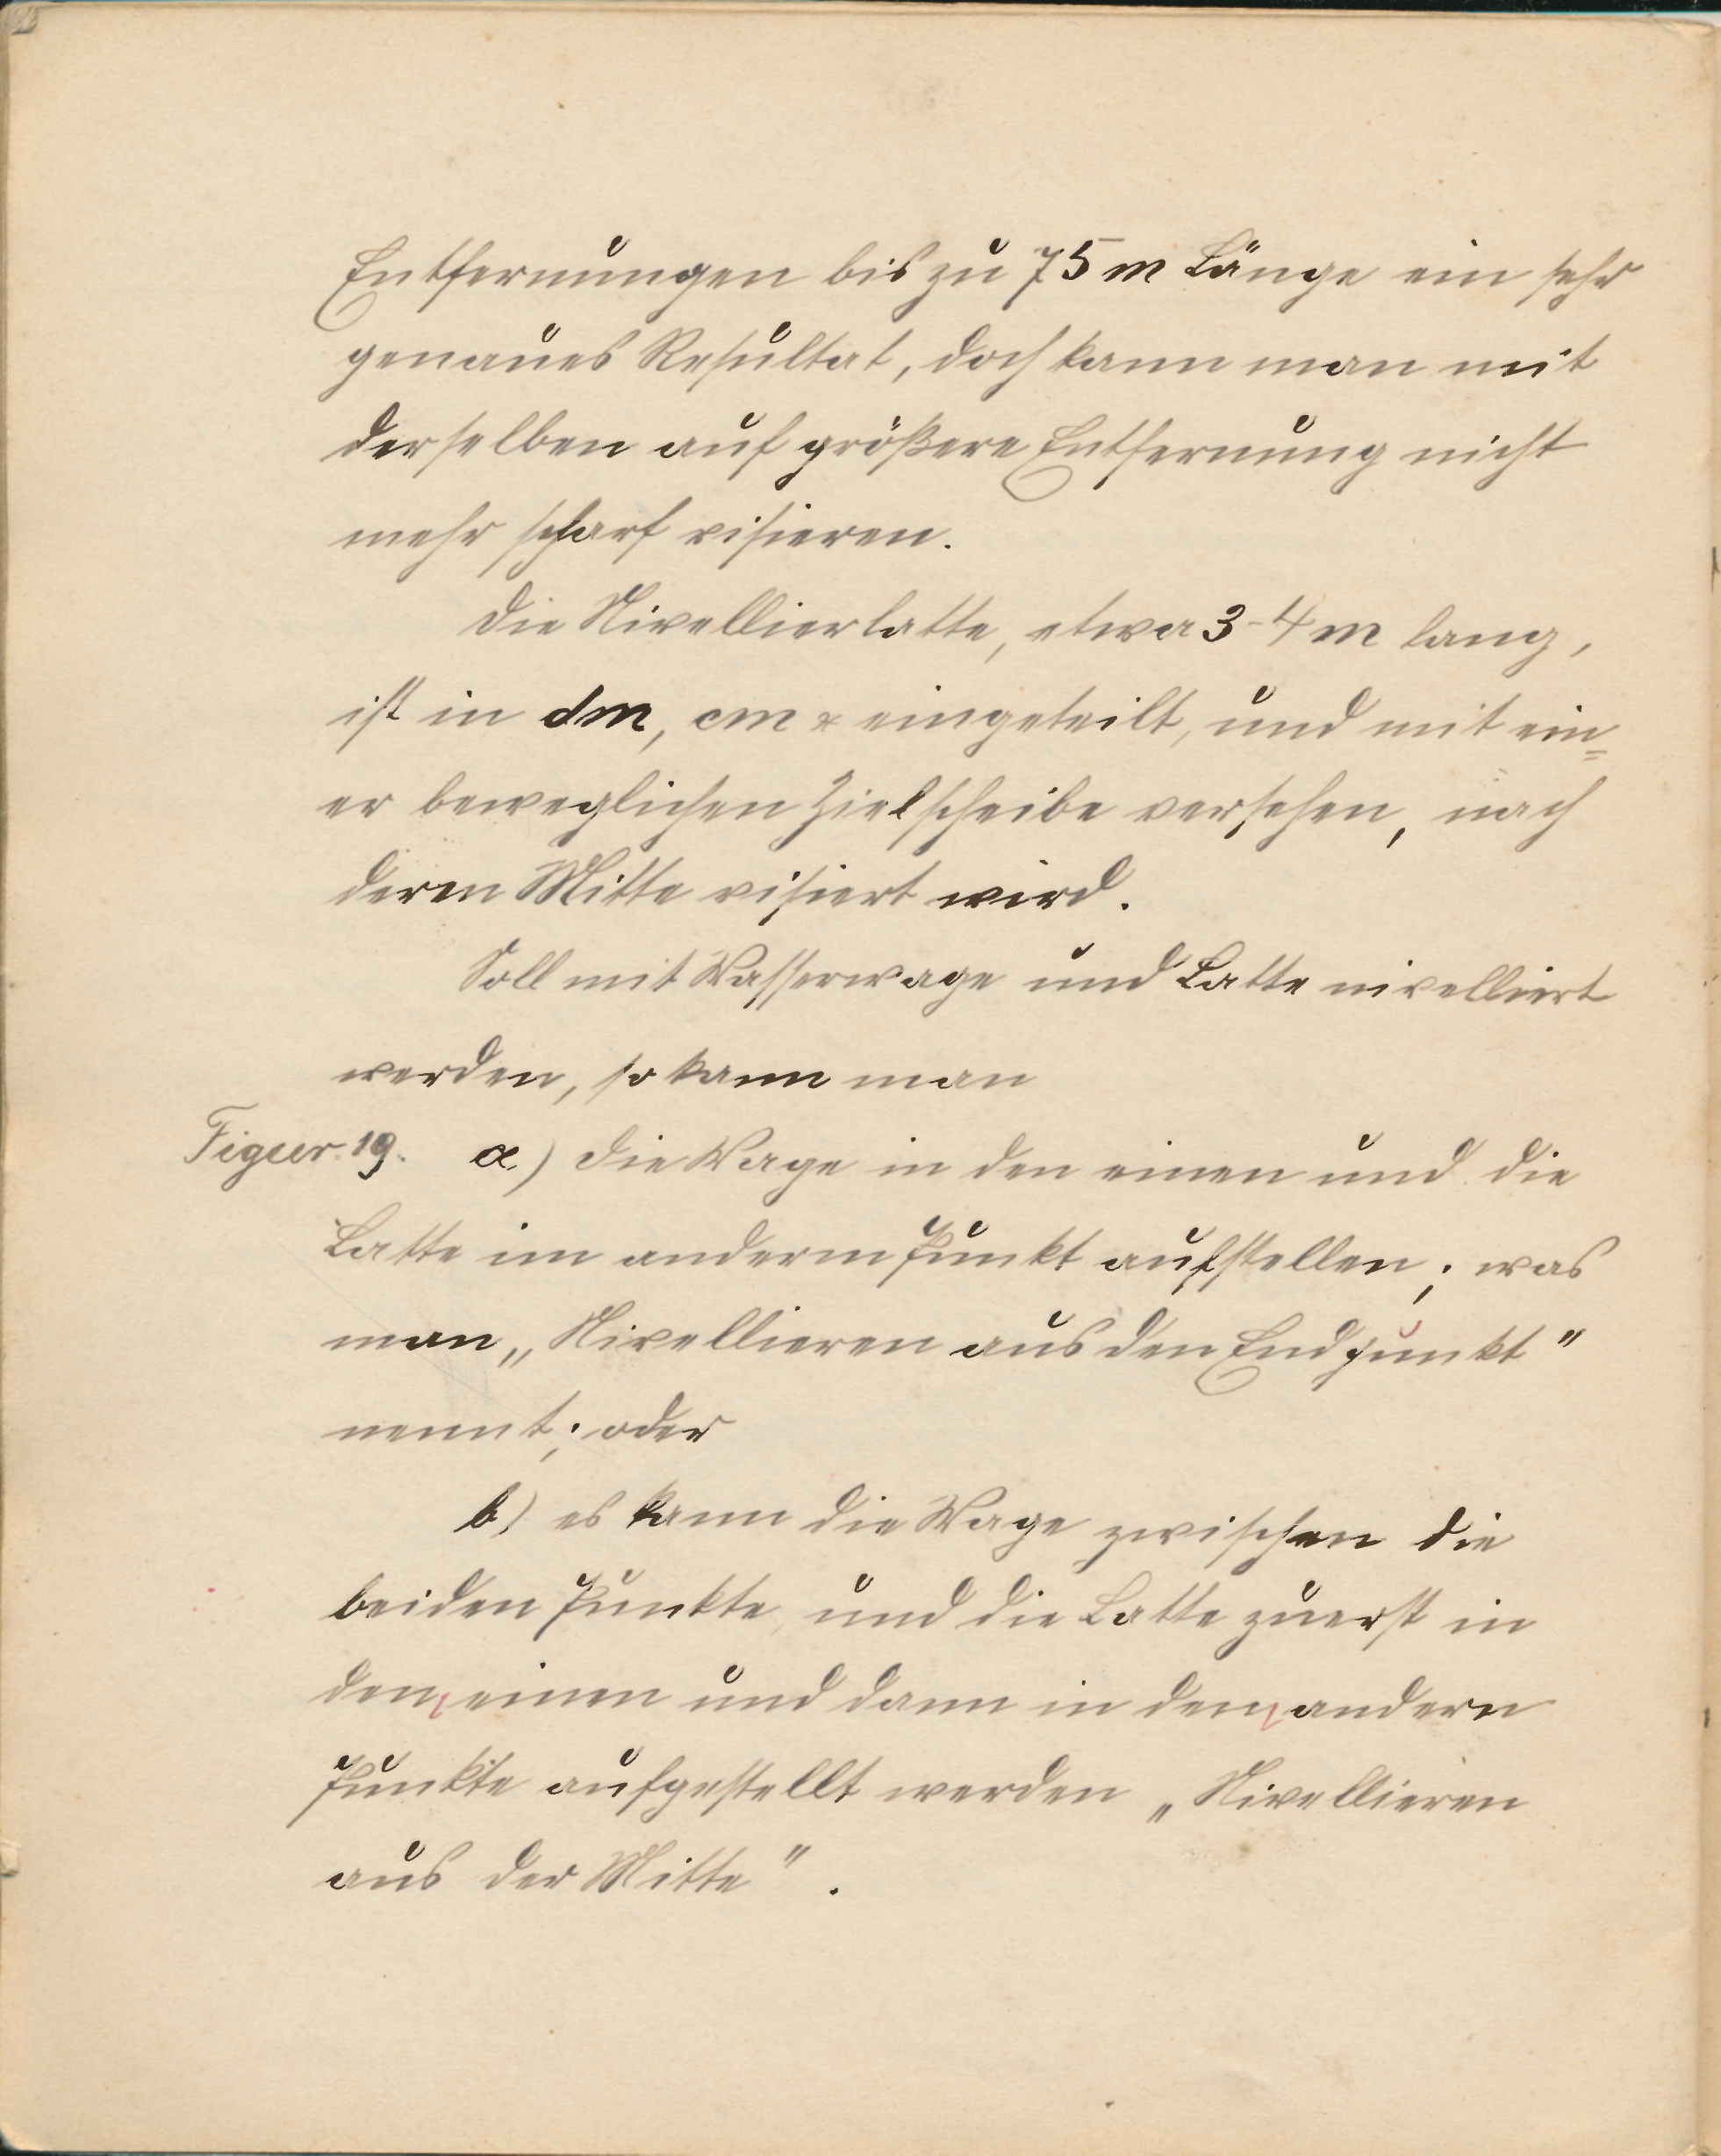 Entfernungen bis zu 75 m Länge ein sehr
genaues Resultat, doch kann man mit
derselben auf größere Entfernung nicht
mehr scharf visieren.
Die Nivellierlatte, etwa 3-4 m lang,
ist in dm, cm & eingeteilt, und mit ein=
er beweglichen Zielscheibe versehen, nach
deren Mitte visiert wird.
Soll mit Wasserwage und Latte nivelliert
werden, so kann man
Figur. 19. a.) die Wage in den einen und die
Latte im anderm Punkt aufstellen; was
man „Nivellieren aus den Endpunkt"
nennt; oder
b) es kann die Wage zwischen die
beiden Punkte, und die Latte zuerst in
den einen und dann in den andern
Punkte aufgestellt werden „Nivellieren
aus der Mitte".